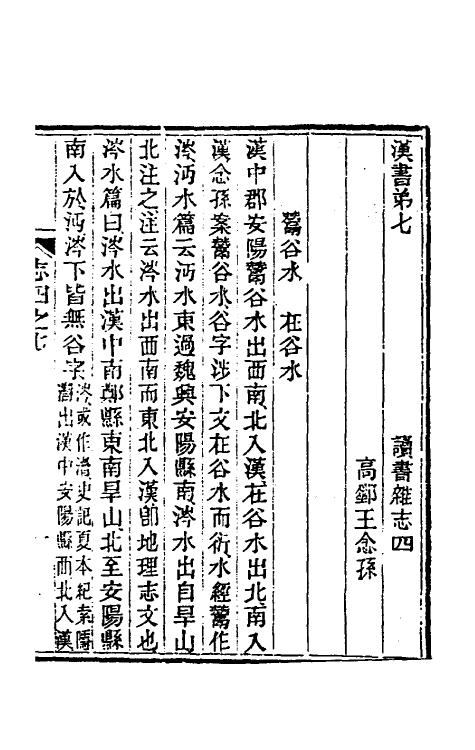 漢書弟七　讀書雜志四
高郵王念孫
鬵谷水　在谷水
漢中郡安陽鬵谷水出西南北入漢在谷水出北南入
漢念孫案鬵谷水谷字涉下文在谷水而衍水經鬵作
涔沔水篇云沔水東過魏興安陽縣南涔水出自旱山
北注之注云涔水出西南而東北入漢卽地理志文也
涔水篇曰涔水出漢中南鄭縣東南旱山北至安陽縣
南入於沔涔下皆無谷字涔或作灊史記夏本紀索隱
灊出漢中安陽縣西北入漢
志四之七